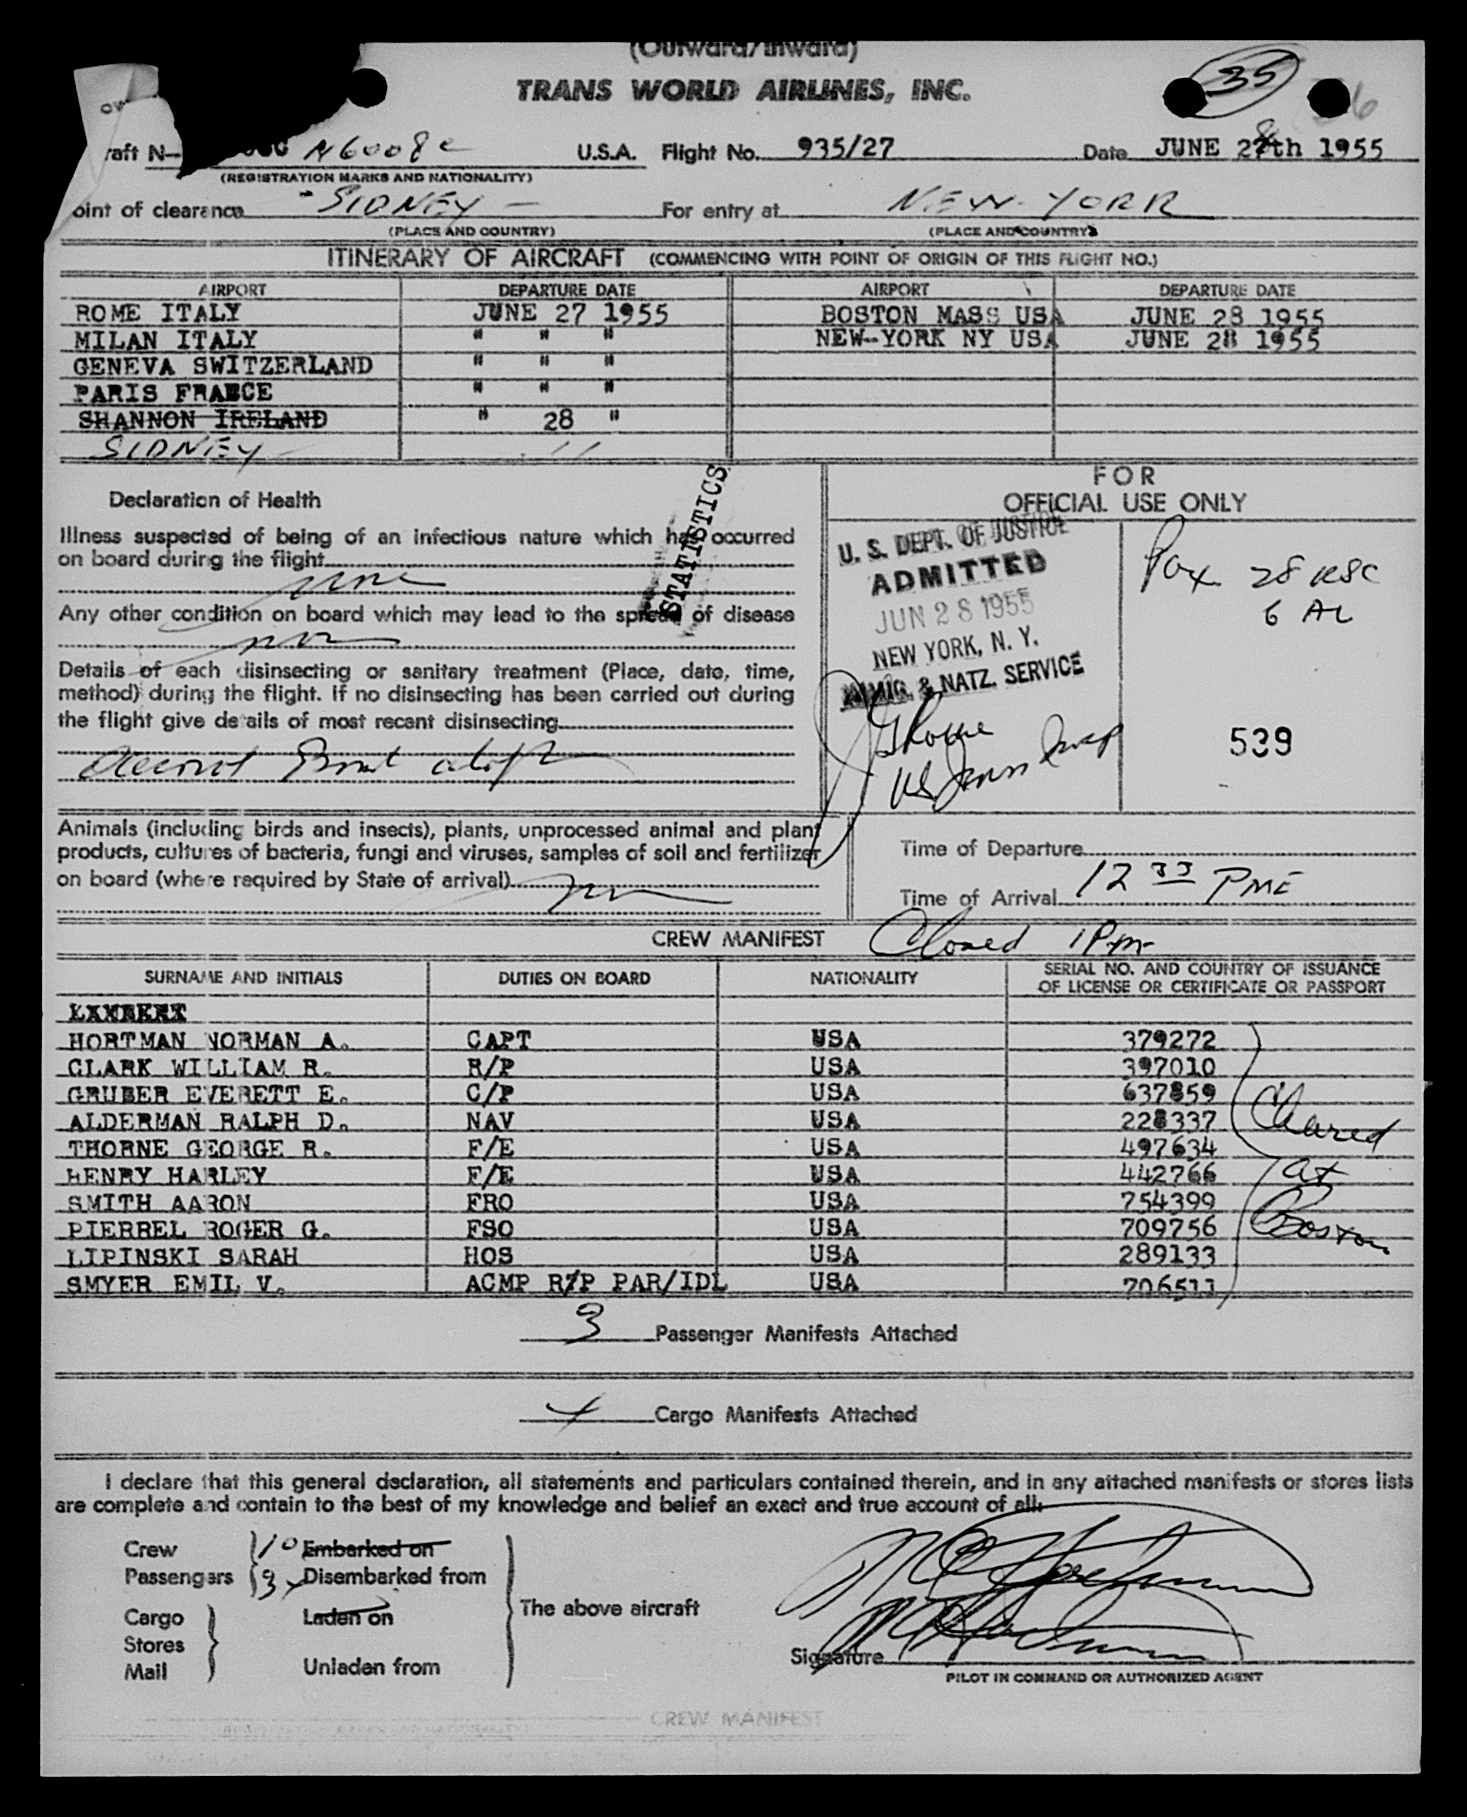 (Outward/Inward)
TRANS WORLD AIRLINES, INC.
35
raft N— N6008c U.S.A. Flight No. 935/27 Date JUNE 28th 1955
(REGISTRATION MARKS AND NATIONALITY)
oint of clearance - SIDNEY - For entry at NEW-YORK
(PLACE AND COUNTRY) (PLACE AND COUNTRY)
ITINERARY OF AIRCRAFT (COMMENCING WITH POINT OF ORIGIN OF THIS FLIGHT NO.)
AIRPORT DEPARTURE DATE AIRPORT DEPARTURE DATE
ROME ITALY JUNE 27 1955 BOSTON MASS USA JUNE 28 1955
MILAN ITALY " " " NEW-YORK NY USA JUNE 28 1955
GENEVA SWITZERLAND " " "
PARIS FRANCE " " "
SHANNON IRELAND " 28 "
SIDNEY - "
STATISTICS
FOR
OFFICIAL USE ONLY
Declaration of Health
Illness suspected of being of an infectious nature which has occurred
on board during the flight
none
Any other condition on board which may lead to the spread of disease
Details of each disinsecting or sanitary treatment (Place, date, time,
method) during the flight. If no disinsecting has been carried out during
the flight give details of most recent disinsecting
U. S. DEPT. OF JUSTICE
ADMITTED
JUN 28 1955
NEW YORK, N. Y.
IMMIG. & NATZ. SERVICE
Pax 28 USC
6 AL
539
Animals (including birds and insects), plants, unprocessed animal and plant
products, cultures of bacteria, fungi and viruses, samples of soil and fertilizer
on board (where required by State of arrival)
Time of Departure
Time of Arrival 12 33 PME
CREW MANIFEST Closed 1 P.m-
SURNAME AND INITIALS DUTIES ON BOARD NATIONALITY SERIAL NO. AND COUNTRY OF ISSUANCE
OF LICENSE OR CERTIFICATE OR PASSPORT
HORTMAN NORMAN A. CAPT USA 379272
CLARK WILLIAM R. R/P USA 397010
GRUBER EVERETT E. C/P USA 637859
ALDERMAN RALPH D. NAV USA 228337
THORNE GEORGE R. F/E USA 497634
HENRY HARLEY F/E USA 442766
SMITH AARON FRO USA 754399
PIERREL ROGER G. FSO USA 709756
LIPINSKI SARAH HOS USA 289133
SMYER EMIL V. ACMP R/P PAR/IDL USA 706511
Cleared
at
Boston
3 Passenger Manifests Attached
Cargo Manifests Attached
I declare that this general declaration, all statements and particulars contained therein, and in any attached manifests or stores lists
are complete and contain to the best of my knowledge and belief an exact and true account of all:
Crew 10 Embarked on
Passengers Disembarked from
Cargo Laden on The above aircraft
Stores
Mail Unladen from
Signature
PILOT IN COMMAND OR AUTHORIZED AGENT
CREW MANIFEST